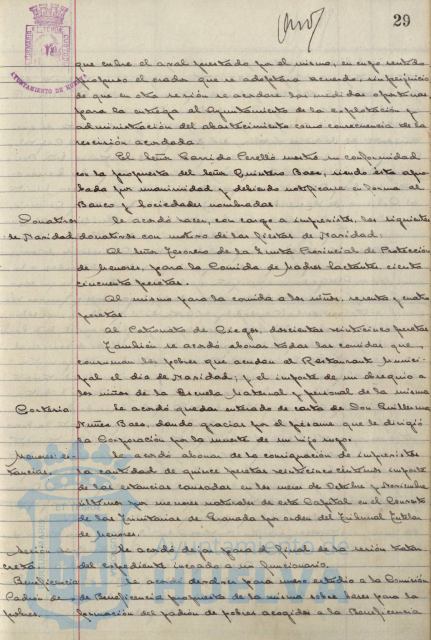 29
que cubre el aval prestado por el mismo, en cuyo sentido
propuso el orador que se adoptara acuerdo, sin perjuicio
de que en otra sesión se acordaran las medidas oportunas
para la entrega al Ayuntamiento de la explotación y
administración del abastecimiento como consecuencia de la
rescisión acordada.
El Señor Garrido Perelló mostró su conformidad
con la propuesta del Señor Quintero Baez, siendo ésta apro-
bada por unanimidad y debiendo notificarse en forma al
Banco y Sociedades nombradas.
Donativos
de Navidad
Se acordó hacer, con cargo a imprevistos, los siguientes
donativos con motivo de las Fiestas de Navidad:
Al Señor Tesorero de la Junta Provincial de Protección
de Menores, para la Comida de Madres lactantes, ciento
cincuenta pesetas.
Al mismo para la comida a los niños, sesenta y cuatro
pesetas.
Al Patronato de Ciegos, doscientas veinticinco pesetas
También se acordó abonar todas las comidas que
consuman los pobres que acudan al Restaurant Munici-
pal el día de Navidad; y el importe de un obsequio a
los niños de la Escuela Maternal y personal de la misma
Cortesía
Se acordó quedar enterado de carta de Don Guillermo
Núñez Baes, dando gracias por el pésame que le dirigió
la Corporación por la muerte de un hijo suyo.
Menores es-
tancias
Se acordó abonar de la consignación de imprevistos
la cantidad de quince pesetas veinticinco céntimos importe
de las estancias causadas en los meses de Octubre y Noviembre
últimos por menores naturales de esta Capital en el Convento
de las Trinitarias de Granada por orden del Tribunal Tutelar
de Menores.
Sesión se-
creta
Se acordó dejar para el final de la sesión tratar
del expediente incoado a un funcionario.
Beneficencia
Padrón de
pobres
Se acordó devolver para nuevo estudio a la Comisión
de Beneficencia propuesta de la misma sobre bases para la
formación del padrón de pobres acogidos a la Beneficencia
Ayuntamiento de